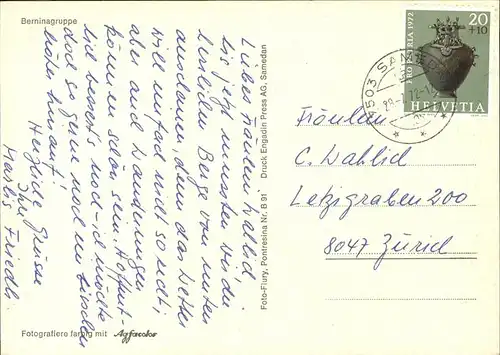 Berninagruppe
Liebes Fräulein Wahlid,
bis jetzt mussten wir die
herrlichen Berge von unten
anschauen, denn das Wetter
will und so nicht
aber auch Wanderungen
können schön sein. Hoffentlich
bessert's noch - ich möchte
doch so gerne noch ein bisschen
höher hinauf!
Herzliche Grüsse
Ihre
Marlis Friedli
Fotografiere farbig mit Agfacolor
Foto-Flury, Pontresina Nr. B 91
Druck Engadin Press AG, Samedan
PRO PATRIA 1972
20
+10
HELVETIA
7503 SAM
Fräulein
C. Wahlid
Letzigraben 200
8047 Zürich